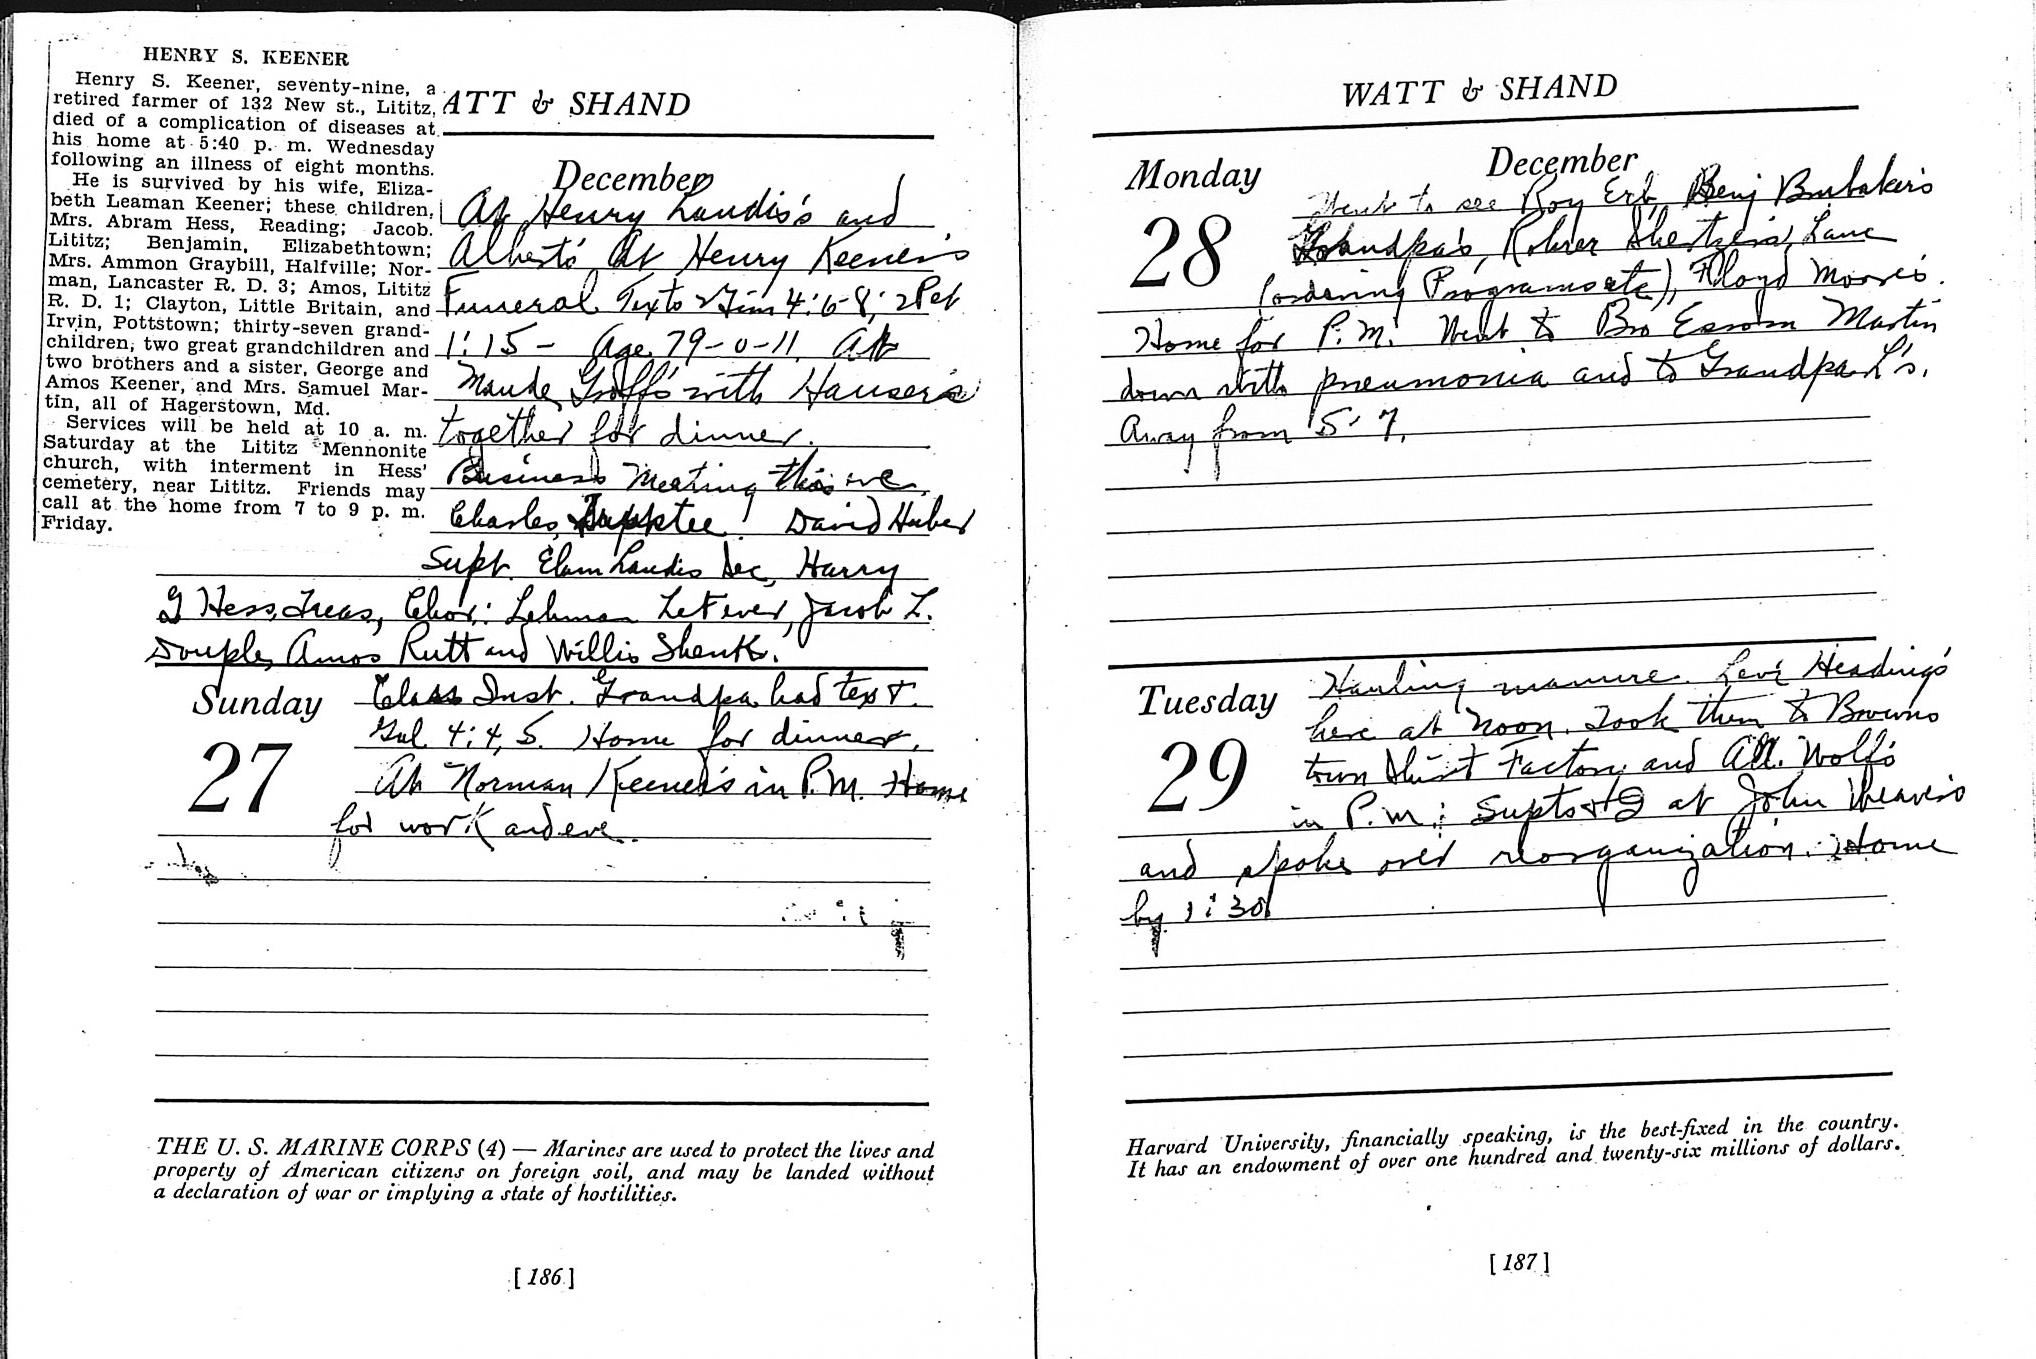 HENRY S. KEENER
Henry S. Keener, seventy-nine, a
retired farmer of 132 New st., Lititz,
died of a complication of diseases at
his home at 5:40 p. m. Wednesday
following an illness of eight months.
He is survived by his wife, Eliza-
beth Leaman Keener; these children,
Mrs. Abram Hess, Reading; Jacob.
Lititz; Benjamin, Elizabethtown;
Mrs. Ammon Graybill, Halfville; Nor-
man, Lancaster R. D. 3; Amos, Lititz
R. D. 1; Clayton, Little Britain, and
Irvin, Pottstown; thirty-seven grand-
children; two great grandchildren and
two brothers and a sister, George and
Amos Keener, and Mrs. Samuel Mar-
tin, all of Hagerstown, Md.
Services will be held at 10 a. m.
Saturday at the Lititz Mennonite
church, with interment in Hess'
cemetery, near Lititz. Friends may
call at the home from 7 to 9 p. m.
Friday.
ATT & SHAND
December
At Henry Landis's and
Albert's At Henry Keener's
Funeral Texts 2 Tim 4:6-8; 2 Pet
1:15 - Age 79-0-11. At
Maude Groff's with Hauser's
together for dinner.
Business Meeting this eve.
Charles, David Huber
Supt. Elam Landis Sec, Harry
G Hess, Treas, Chor: Lehman LeFever, Jacob L.
Douple, Amos Rutt and Willis Shenk.
Sunday
27
Class Inst. Grandpa had text.
Gal. 4:4,5. Home for dinner.
At Norman Keener's in P.M. Home
for work and eve.
THE U. S. MARINE CORPS (4) — Marines are used to protect the lives and
property of American citizens on foreign soil, and may be landed without
a declaration of war or implying a state of hostilities.
[ 186 ]
WATT & SHAND
Monday
28
December
Went to see Roy Erb, Benj Brubaker's
Grandpa's, Rohrer Shertzer's, Lanc
(ordering Programs etc), Floyd
Home for P.M. Went to Bro Martin
down with pneumonia and to Grandpa L's.
Away from 5-7.
Tuesday
29
Hauling manure. Levi Headings
here at noon. Took them to Browns
town Shirt Factory and Wolf's
in P.M.; at John Weaver's
and spoke over reorganization. Home
by 1:30
Harvard University, financially speaking, is the best-fixed in the country.
It has an endowment of over one hundred and twenty-six millions of dollars.
[ 187 ]